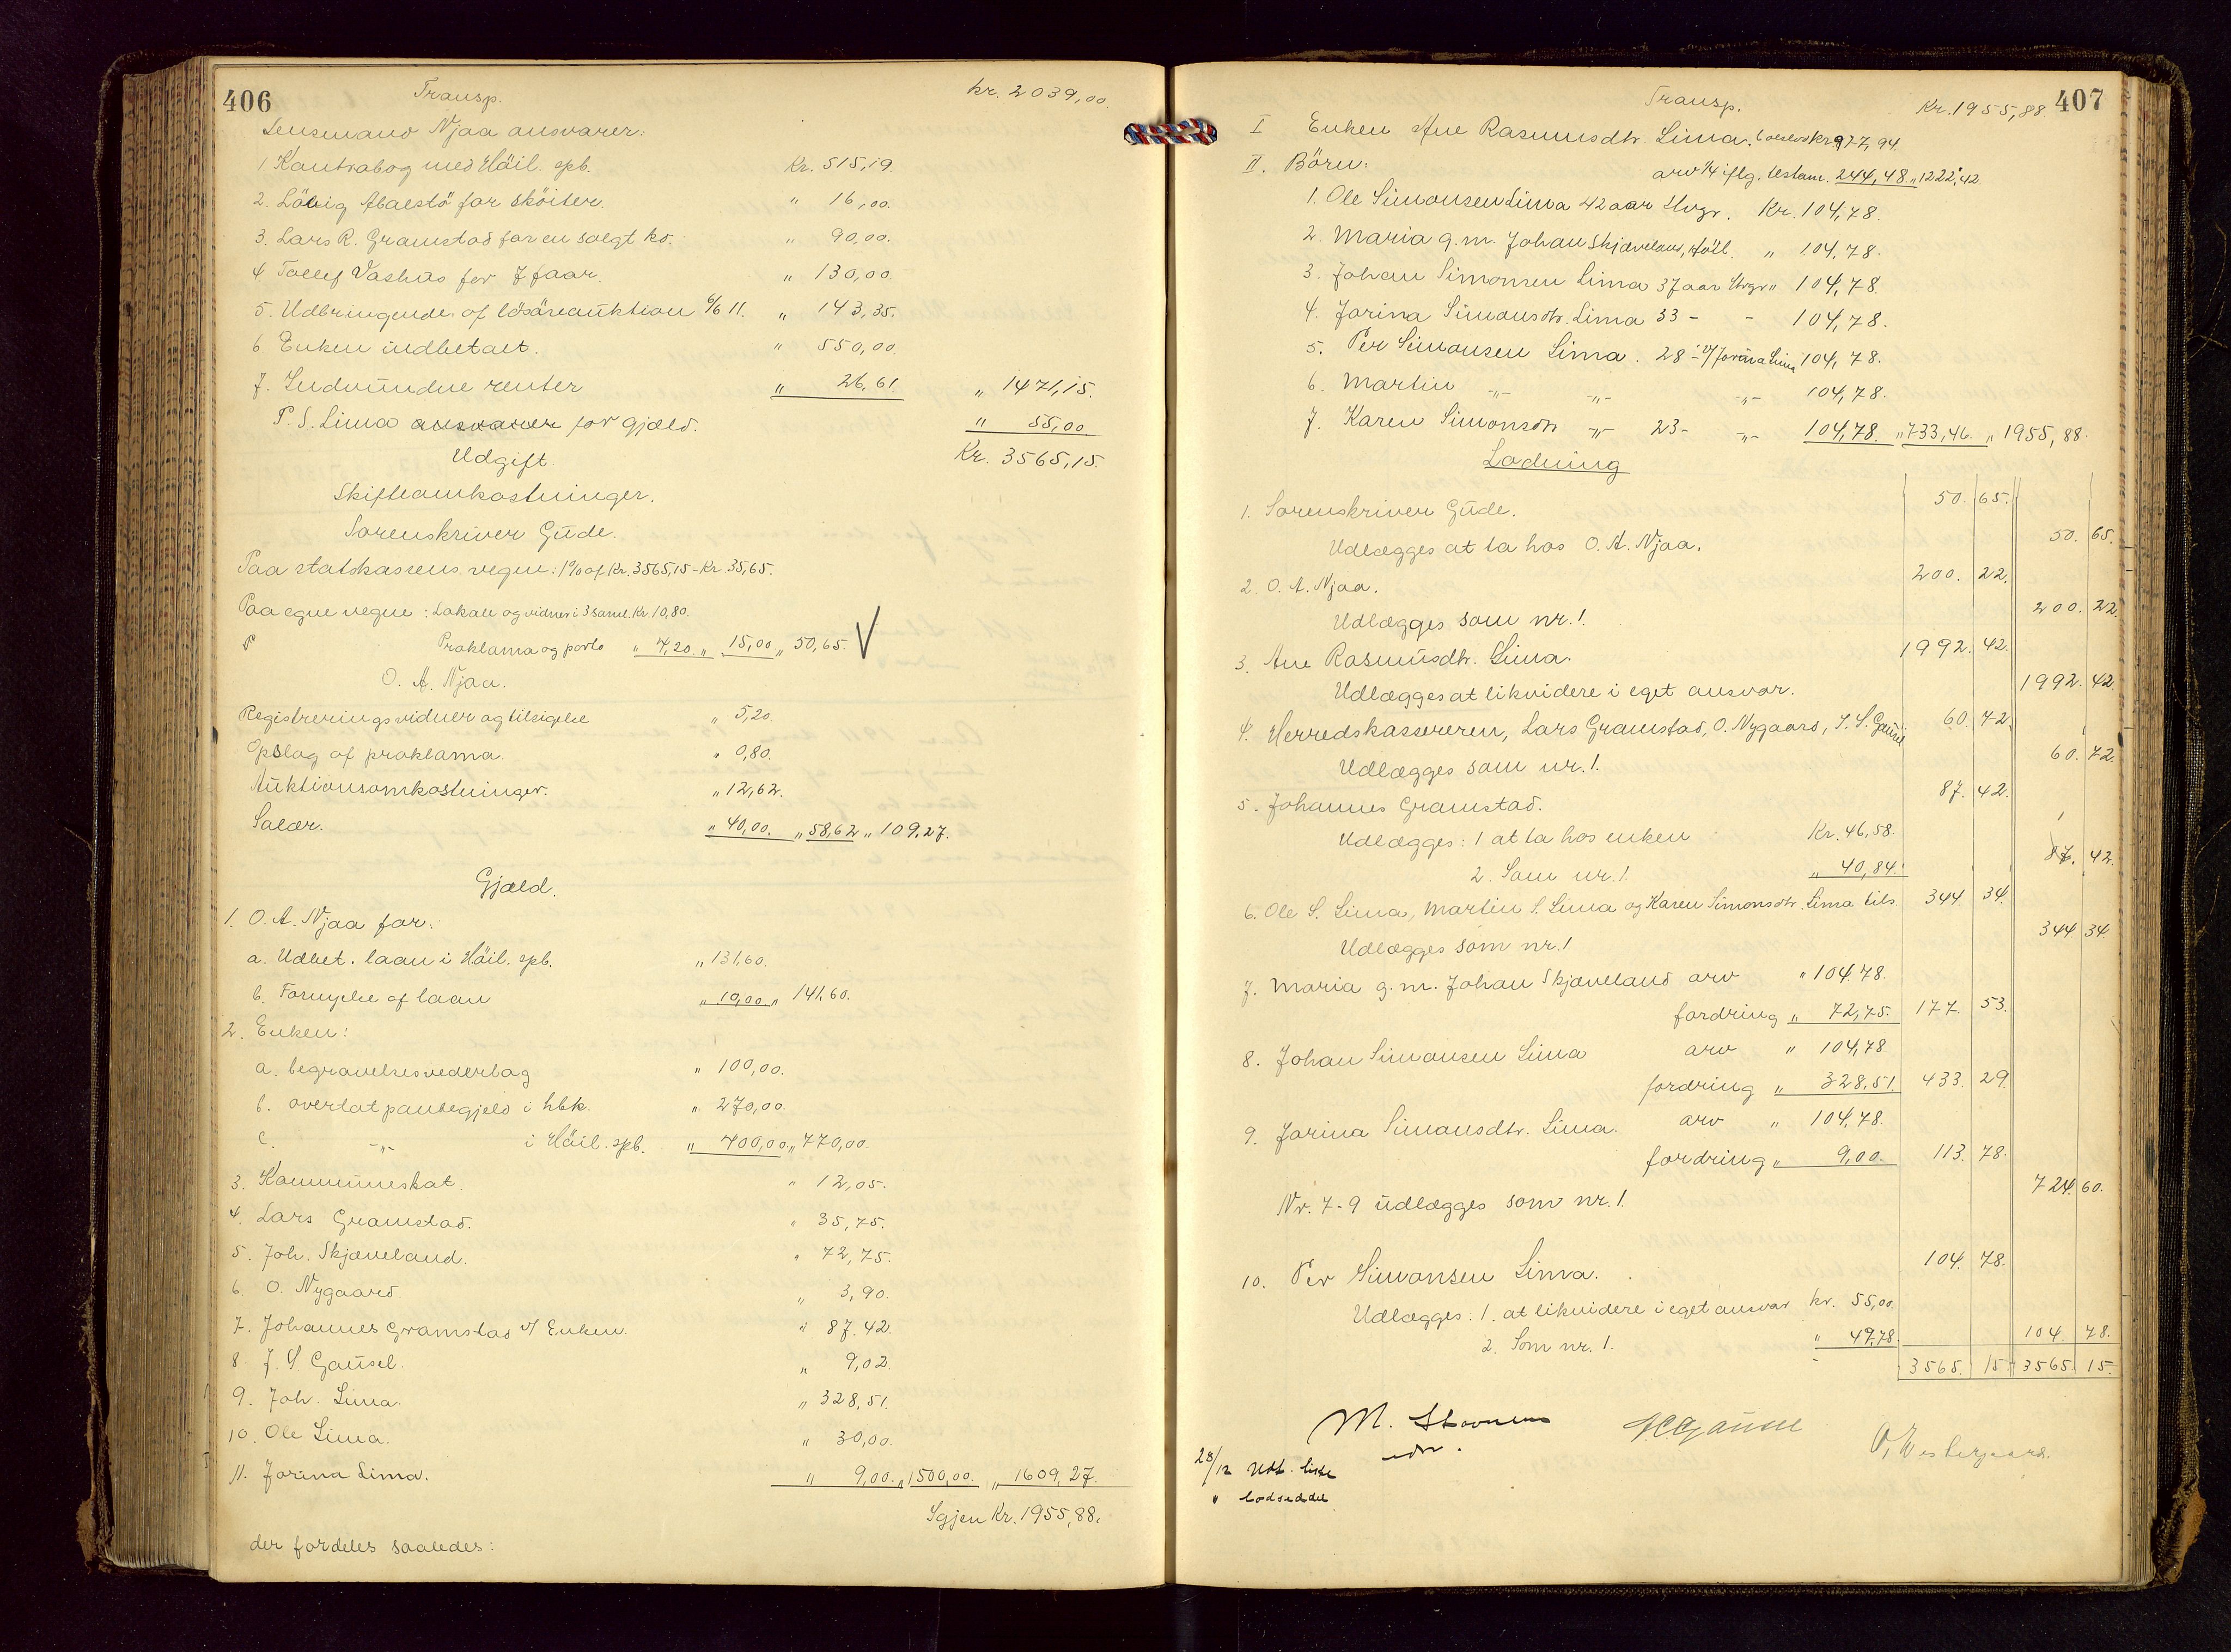 406
Transp. kr. 2039,00.
Lensmand Njaa ansvarer:
1 Kontrabog med Höil. spb. Kr. 515,19.
2. Lövig Aalestö for sköiter. " 16,00.
3. Lars R. Gramstad for en solgt ko. " 90,00.
4 Tollef Vashus for 7 faar. " 130,00.
5. Udbringendes af lösöreauktion 6/6 11. " 143,35.
6 Enken indbetalt. " 550,00.
7. Indvundne renter " 26,61. " 1471,15.
P. S. Lima ansvarer for gjæld. " 55,00
Udgift. Kr. 3565,15.
Skifteomkostninger.
Sorenskriver Gude.
Paa statskassens vegne: 1% af Kr. 3565,15 - Kr. 35,65.
Paa egne vegne: Lokale og vidner i 3 saml. Kr. 10,80.
Proklama og porto " 4,20. " 15,00 " 50,65.
O. A. Njaa.
Registreringsvidner og tilsigelse " 5,20.
Opslag af proklama. " 0,80.
Auktionsomkostninger. " 12,62.
Salær. " 40,00. " 58,62 " 109,27.
Gjæld.
1. O. A. Njaa for:
a. Udbet. laan i Höil. spb. " 131,60.
b. Fornyelse af laan " 10,00 " 141,60.
2. Enken:
a. begravelsesvederlag " 100,00.
b. overtat pantegjeld i hbk. " 270,00.
c. -"- i Höil. spb. " 400,00 " 770,00.
3. Kommuneskat. " 12,05.
4. Lars Gramstad. " 35,75.
5. Joh. Skjæveland. " 72,75.
6. O. Nygaard. " 3,90.
7. Johannes Gramstad v/ Enken. " 87.42.
8 J. S. Gausel. " 9,02.
9. Joh. Lima. " 328,51.
10. Ole Lima. " 30,00.
11. Jorina Lima. " 9,00. " 1500,00. " 1609,27.
Igjen Kr. 1955,88.
der fordeles saaledes:
407
Transp. Kr. 1955,88
I Enken Ane Rasmusdtr Lima. boeslod kr 977,94.
II. Börn: arv 1/4 iflg. testam. 244,48. " 1222,42
1. Ole Simonsen Lima 42 aar Urgr. Kr. 104,78.
2. Maria g.m. Johan Skjæveland, Höil. " 104,78.
3. Johan Simonsen Lima 37 aar Urgr " 104,78.
4. Jorina Simonsdtr. Lima 33 - - 104,78.
5. Per Simonsen Lima. 28 - v/ Jorina Lima 104,78.
6. Martin -"- -"- -"- 104,78.
7. Karen Simonsdtr -"- 23 - -"- 104,78. " 733,46. " 1955,88.
Lodning
1. Sorenskriver Gude. 50. 65.
Udlægges at ta hos O. A. Njaa. 50. 65.
2. O. A. Njaa. 200. 22.
Udlægges som nr. 1. 200. 22.
3. Ane Rasmusdtr. Lima. 1992. 42.
Udlægges at likvidere i eget ansvar. 1992. 42.
4. Herredskassereren, Lars Gramstad, O. Nygaard, J. S. Gausel 60. 72.
Udlægges som nr. 1. 60. 72.
5. Johannes Gramstad. 87. 42.
Udlægges: 1 at ta hos enken Kr. 46,58.
2. Som nr. 1. " 40,84. 87. 42.
6. Ole S. Lima, Martin S. Lima og Karen Simonsdtr. Lima tils. 344. 34.
Udlægges som nr. 1 344. 34.
7. Maria g.m. Johan Skjæveland arv " 104.78.
fordring " 72,75. 177. 53.
8. Johan Simonsen Lima arv " 104,78
fordring " 328,51. 433. 29.
9. Jorina Simonsdtr. Lima. arv " 104,78.
fordring " 9,00. 113. 78.
Nr. 7-9 udlægges som nr. 1. 724. 60.
10. Per Simonsen Lima. 104. 78.
Udlægges: 1. at likvidere i eget ansvar kr. 55,00.
2. Som nr. 1. " 49,78. 104. 78.
3565. 15 3565. 15.
28/12 Udt. liste
" lodseddel